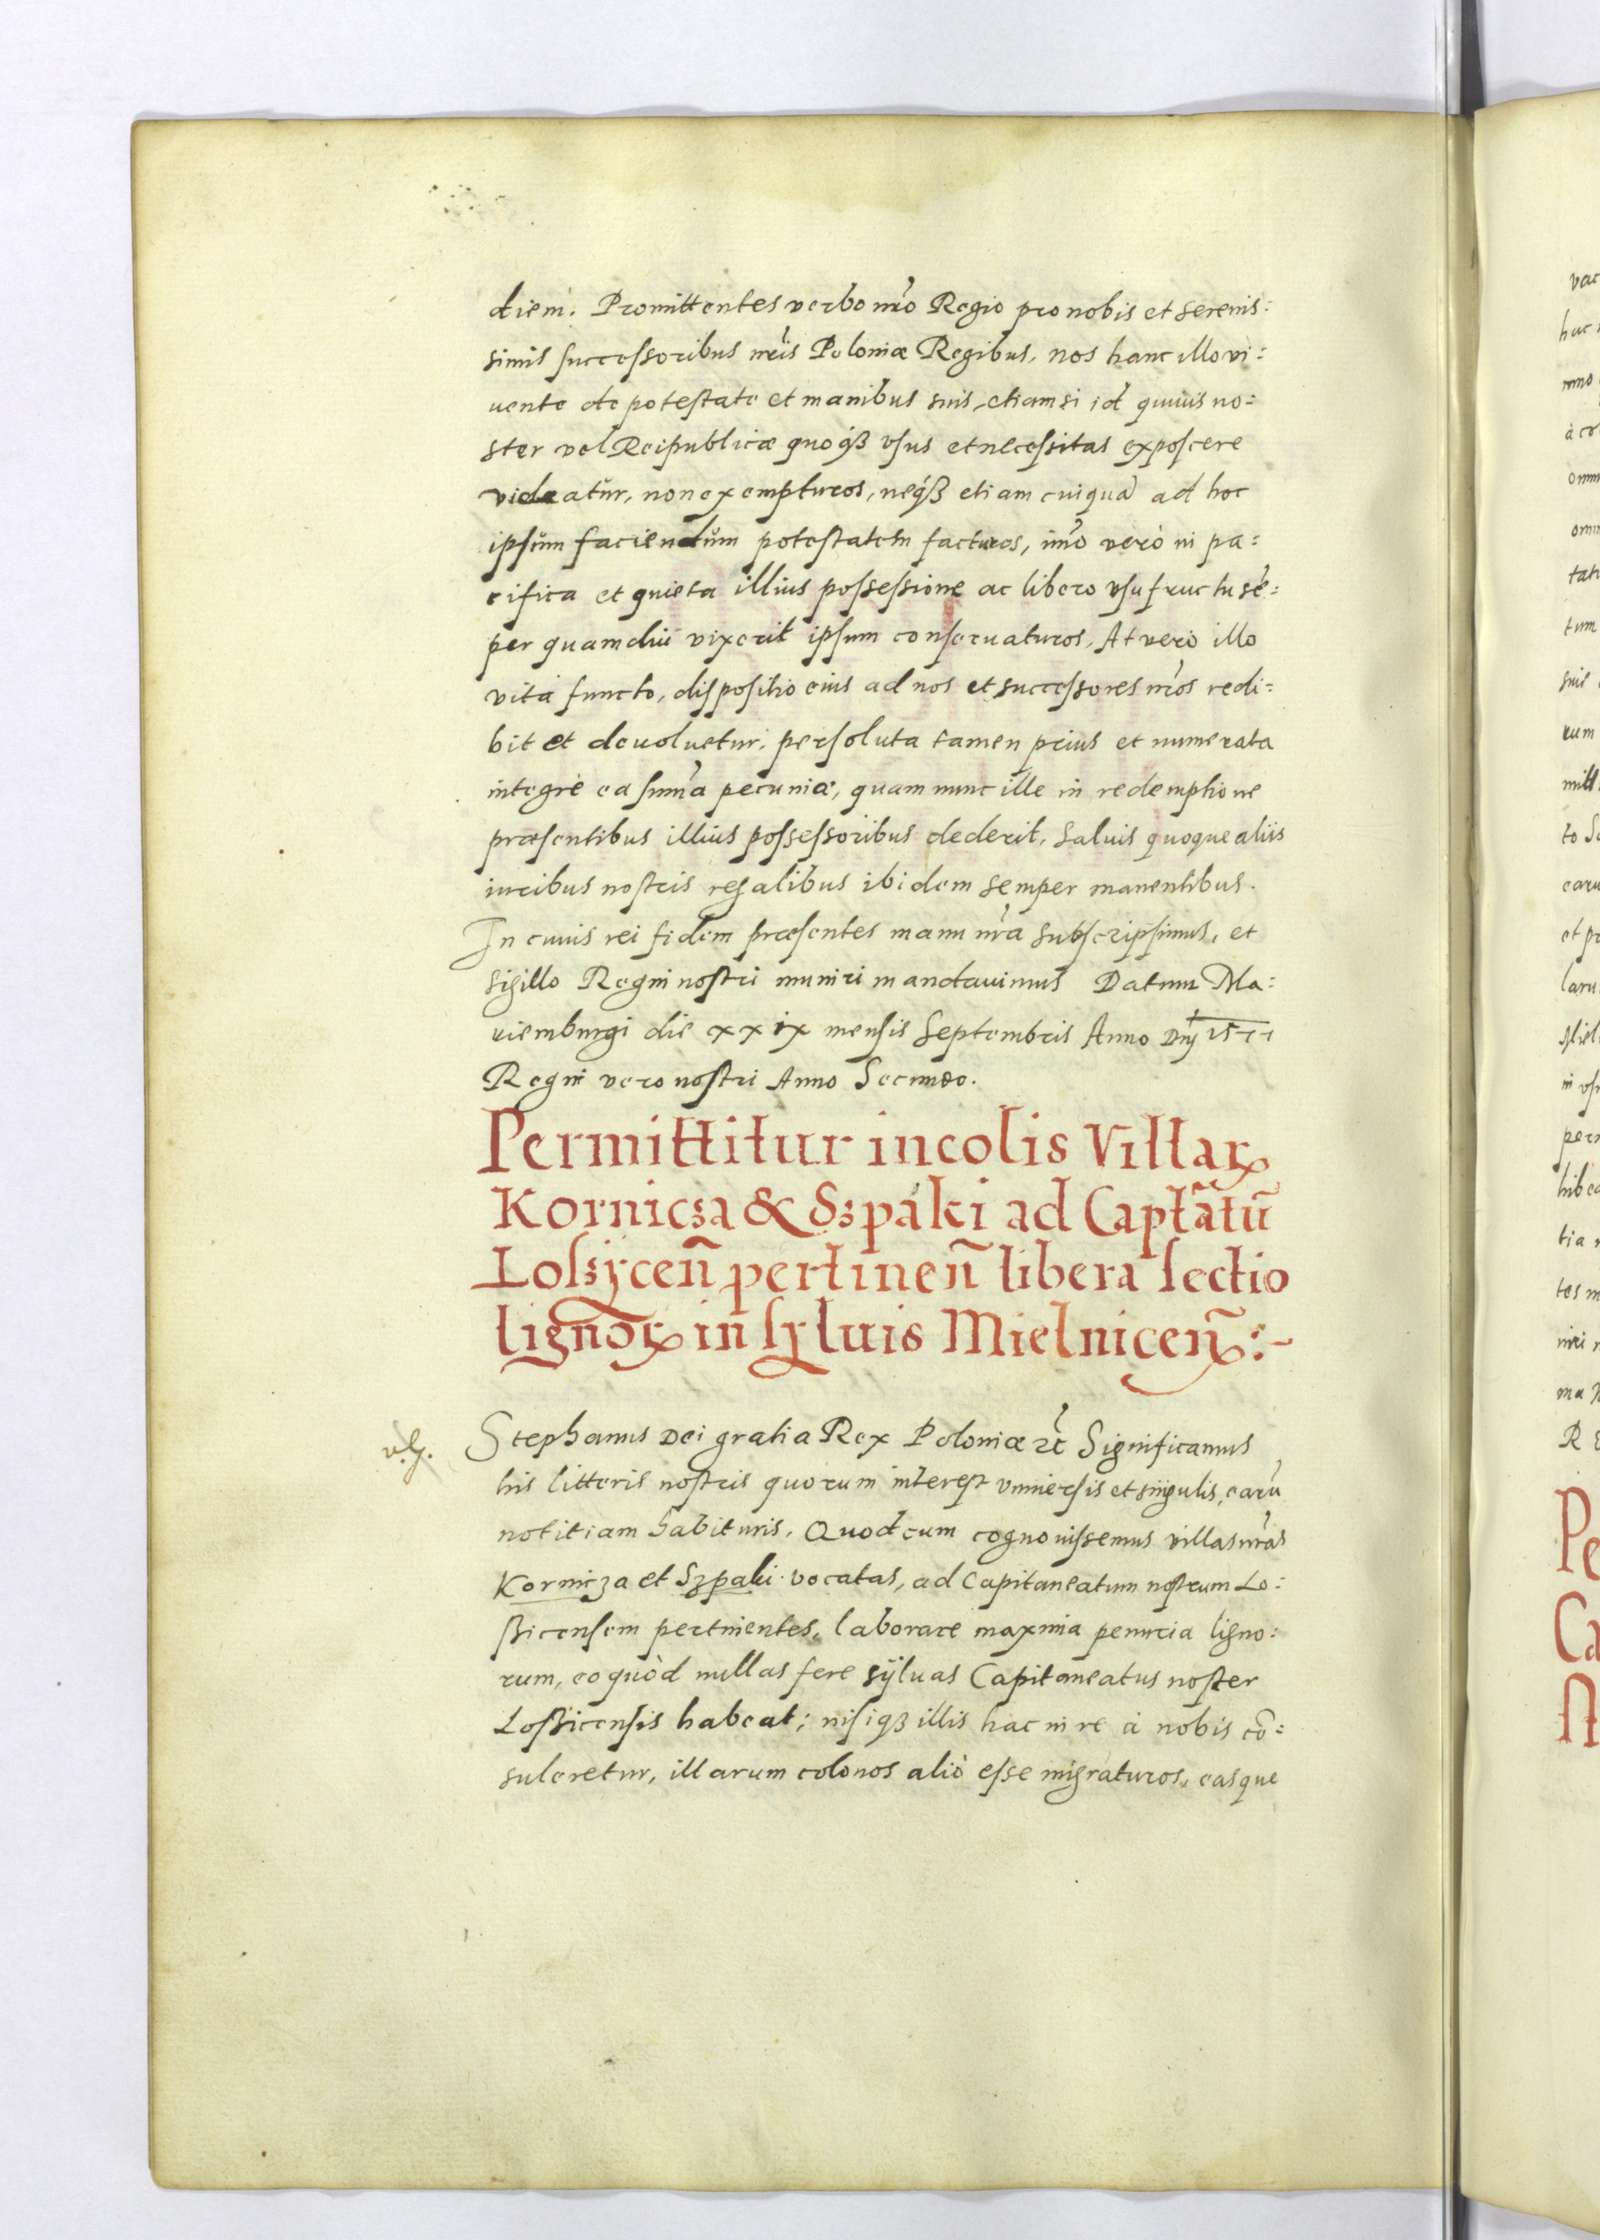 diem. Promittentes verbo nr̃o Regio pro nobis et serenis:
simis successoribus nr̃is Poloniæ Regibus, nos hanc illo vi:
uente de potestate et manibus suis, etiamsi id quiuis no:
ster vel Reipublicæ quoqȝ vsus et necessitas exposcere
videatur, non exempturos, neqȝ etiam cuiquã ad hoc
ipsum faciendum potestatem facturos, im̃o verò in pa:
cifica et quieta illius possessione ac libero vsufructu sẽ:
per quamdiu vixerit ipsum conseruaturos, At vero illo
vita functo, dispositio eius ad nos et successores nr̃os redi:
bit et deuoluetur, persoluta tamen prius et numerata
integrè ea sum̃a pecuniæ, quam nunc ille in redemptione
præsentibus illius possessoribus dederit, Saluis quoque aliis
iuribus nostris regalibus ibidem semper manentibus.
In cuius rei fidem præsentes manu nr̃a subscripsimus, et
sigillo Regni nostri muniri mandauimus Datum Ma:
riemburgi die xxix mensis Septembris Anno Dnj 1577
Regni vero nostri Anno Secundo.
Permittitur incolis Villaꝝ
Kornicza & Szpaki ad Captãtũ
Loszÿceñ pertineñ libera sectio
lignoꝝ in sÿluis Mielniceñ:-
Stephanus Dei gratia Rex Poloniæ ꝛc̃ Significamus
his litteris nostris quorum interest vniuersis et singulis, earũ
notitiam habituris, Quod cum cognouissemus villas nr̃as
Kornicza et Szpaki vocatas, ad Capitaneatum nostrum Lo:
ßicensem pertinentes, laborare maxima penuria ligno:
rum, eo quòd nullas fere sÿluas Capitaneatus noster
Loßicensis habeat; nisiqȝ illis hac in re à nobis cõ:
suleretur, illarum colonos aliò esse migraturos, easque